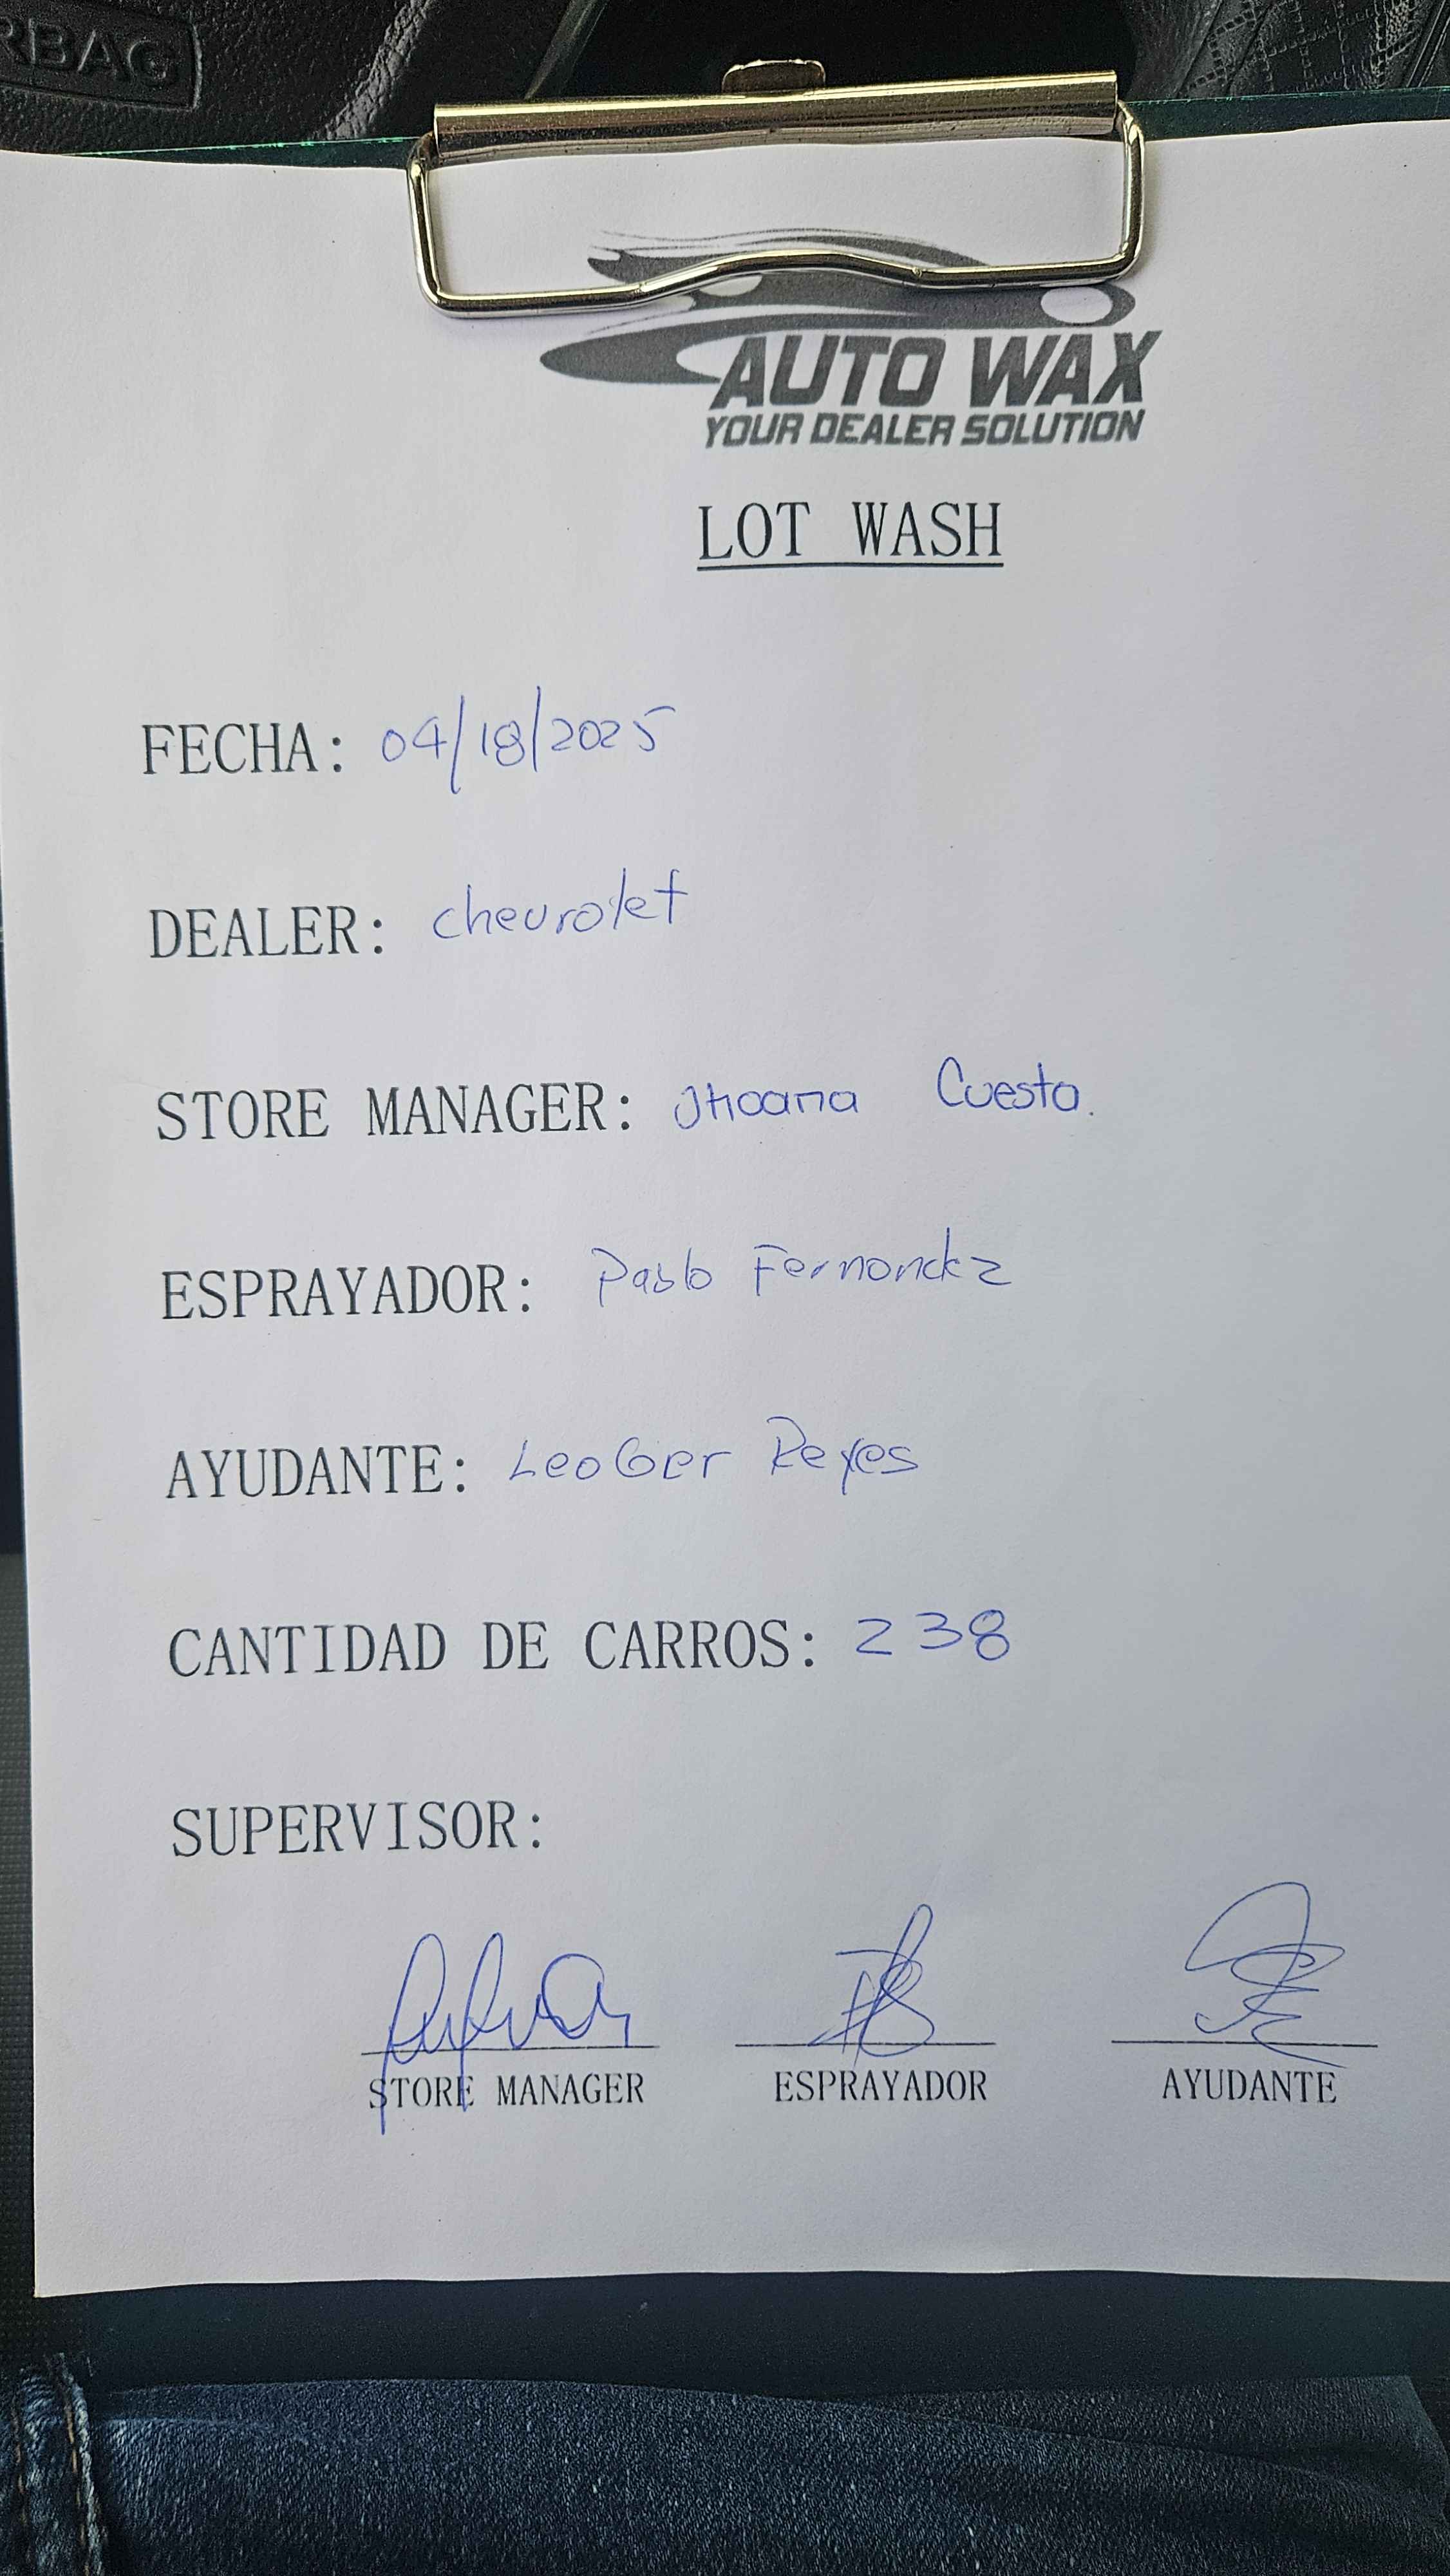 RBAG
AUTO WAX
YOUR DEALER SOLUTION
LOT WASH
FECHA: 04/18/2025
DEALER: chevrolet
STORE MANAGER: Jhoana Cuesta.
ESPRAYADOR: Pablo Fernandez
AYUDANTE: Leoger Reyes
CANTIDAD DE CARROS: 238
SUPERVISOR:
STORE MANAGER ESPRAYADOR AYUDANTE